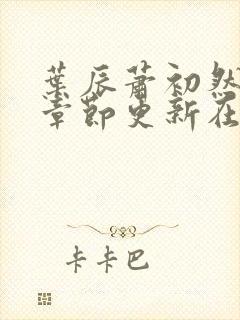 葉辰蕭初然
章節更新在
卡卡巴